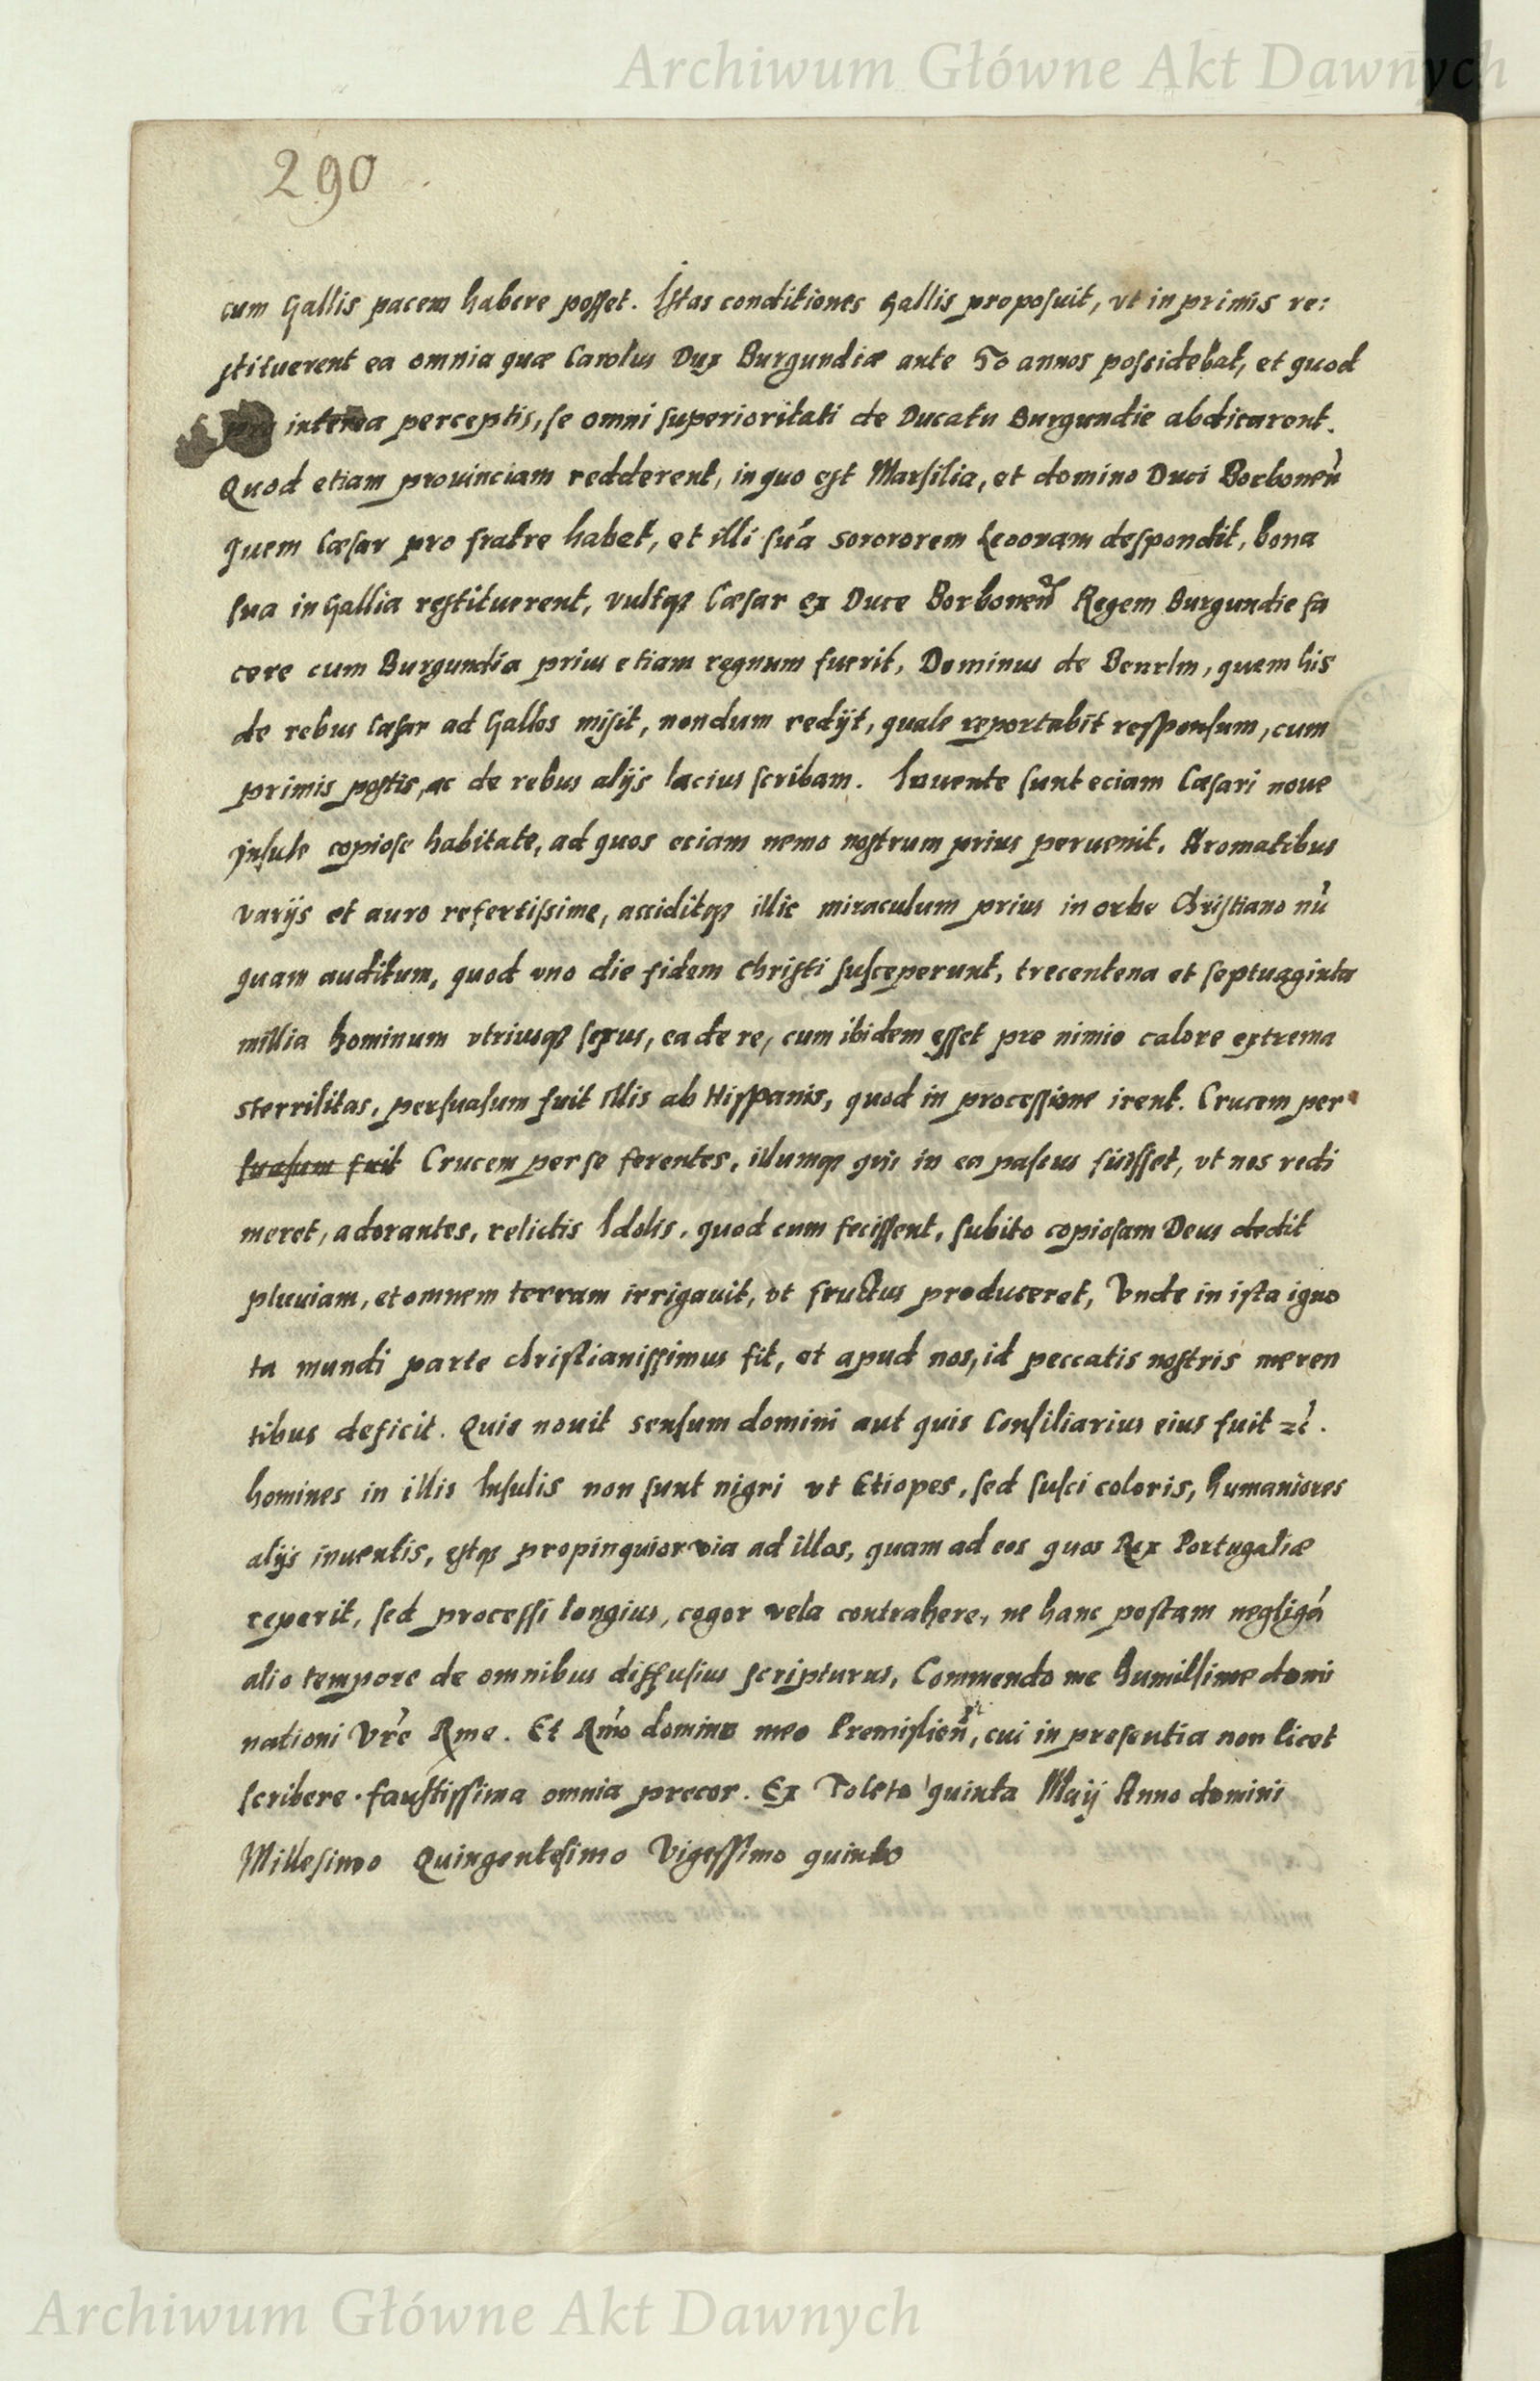 Archiwum Główne Akt Dawnych
290
cum Gallis pacem habere posset. Istas conditiones Gallis proposuit, vt in primis re:
stituerent ea omnia quæ Carolus Dux Burgundiæ ante 50 annos possidebat, et quod
interea perceptis, se omni superioritati de Ducatu Burgundie abdicarent.
Quod etiam prouinciam redderent, in quo est Marsilia, et domino Duci Borboneñ
quem Cæsar pro fratre habet, et illi suá sorororem Leooram despondit, bona
sua in Gallia restituerent, vultqꝫ Cæsar ex Duce Borboneñ Regem Burgundie fa
cere cum Burgundia prius etiam regnum fuerit, Dominus de, quem his
de rebus Cæsar ad Gallos misit, nondum redijt, quale reportabit responsum, cum
primis postis, ac de rebus alijs lacius scribam. Inuente sunt eciam Cæsari noue
Insule copiose habitate, ad quos eciam nemo nostrum prius peruenit. Aromatibus
varijs et auro refertissime, acciditqꝫ illic miraculum prius in orbe Christiano nũ
quam auditum, quod vno die fidem Christi susceperunt, trecentena et septuaginta
millia hominum vtriusqꝫ sexus, ea de re, cum ibidem esset pre nimio calore extrema
sterrilitas, persuasum fuit illis ab Hispanis, quod in processione irent. Crucem per
suasum fuit Crucem per se ferentes, illumqꝫ qui in ea passus fuisset, vt nos redi
meret, adorantes, relictis Idolis, quod cum fecissent, subito copiosam Deus dedit
pluuiam, et omnem terram irrigauit, vt fructus produceret, Vnde in ista igno
ta mundi parte christianissimus fit, et apud nos, id peccatis nostris meren
tibus deficit. Quis nouit sensum domini aut quis Consiliarius eius fuit ꝛc̃.
homines in illis Insulis non sunt nigri vt Etiopes, sed fusci coloris, humaniores
alijs inuentis, estqꝫ propinquior via ad illos, quam ad eos quos Rex Portugaliæ
reperit, sed processi longius, cogor vela contrahere, ne hanc postam negligá
alio tempore de omnibus diffusius scripturus, Commendo me humillsime domi
nationi Vrẽ Rme. Et Rmo domino meo Premislieñ, cui in presentia non licet
scribere. faustissima omnia precor. Ex Toleto quinta Maij Anno domini
Millesimo Quingentesimo Vigessimo quinto
Archiwum Główne Akt Dawnych